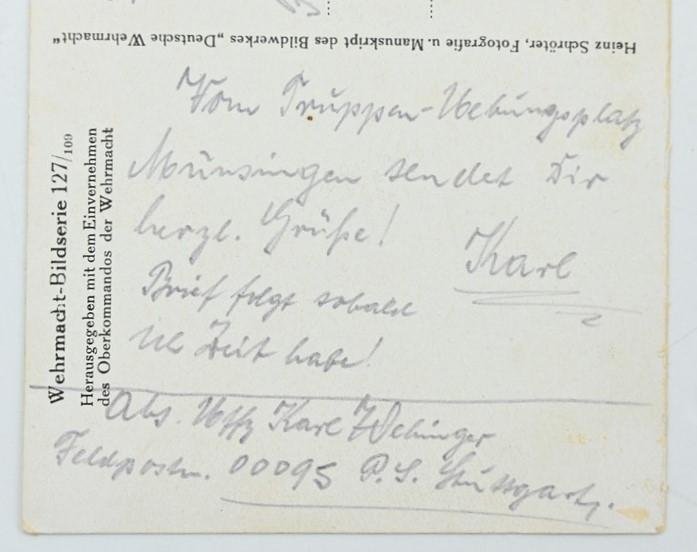 Heinz Schröter, Fotografie u. Manuskript des Bildwerkes „Deutsche Wehrmacht“
Wehrmacht-Bildserie 127/109
Herausgegeben mit dem Einvernehmen
des Oberkommandos der Wehrmacht
Vom Truppen-Uebungsplatz
Münsingen sendet Dir
herzl. Grüße!
Karl
Brief folgt sobald
ich Zeit habe!
Abs. Uffz Karl
Feldpostn. 00095 P.S. Stuttgart.